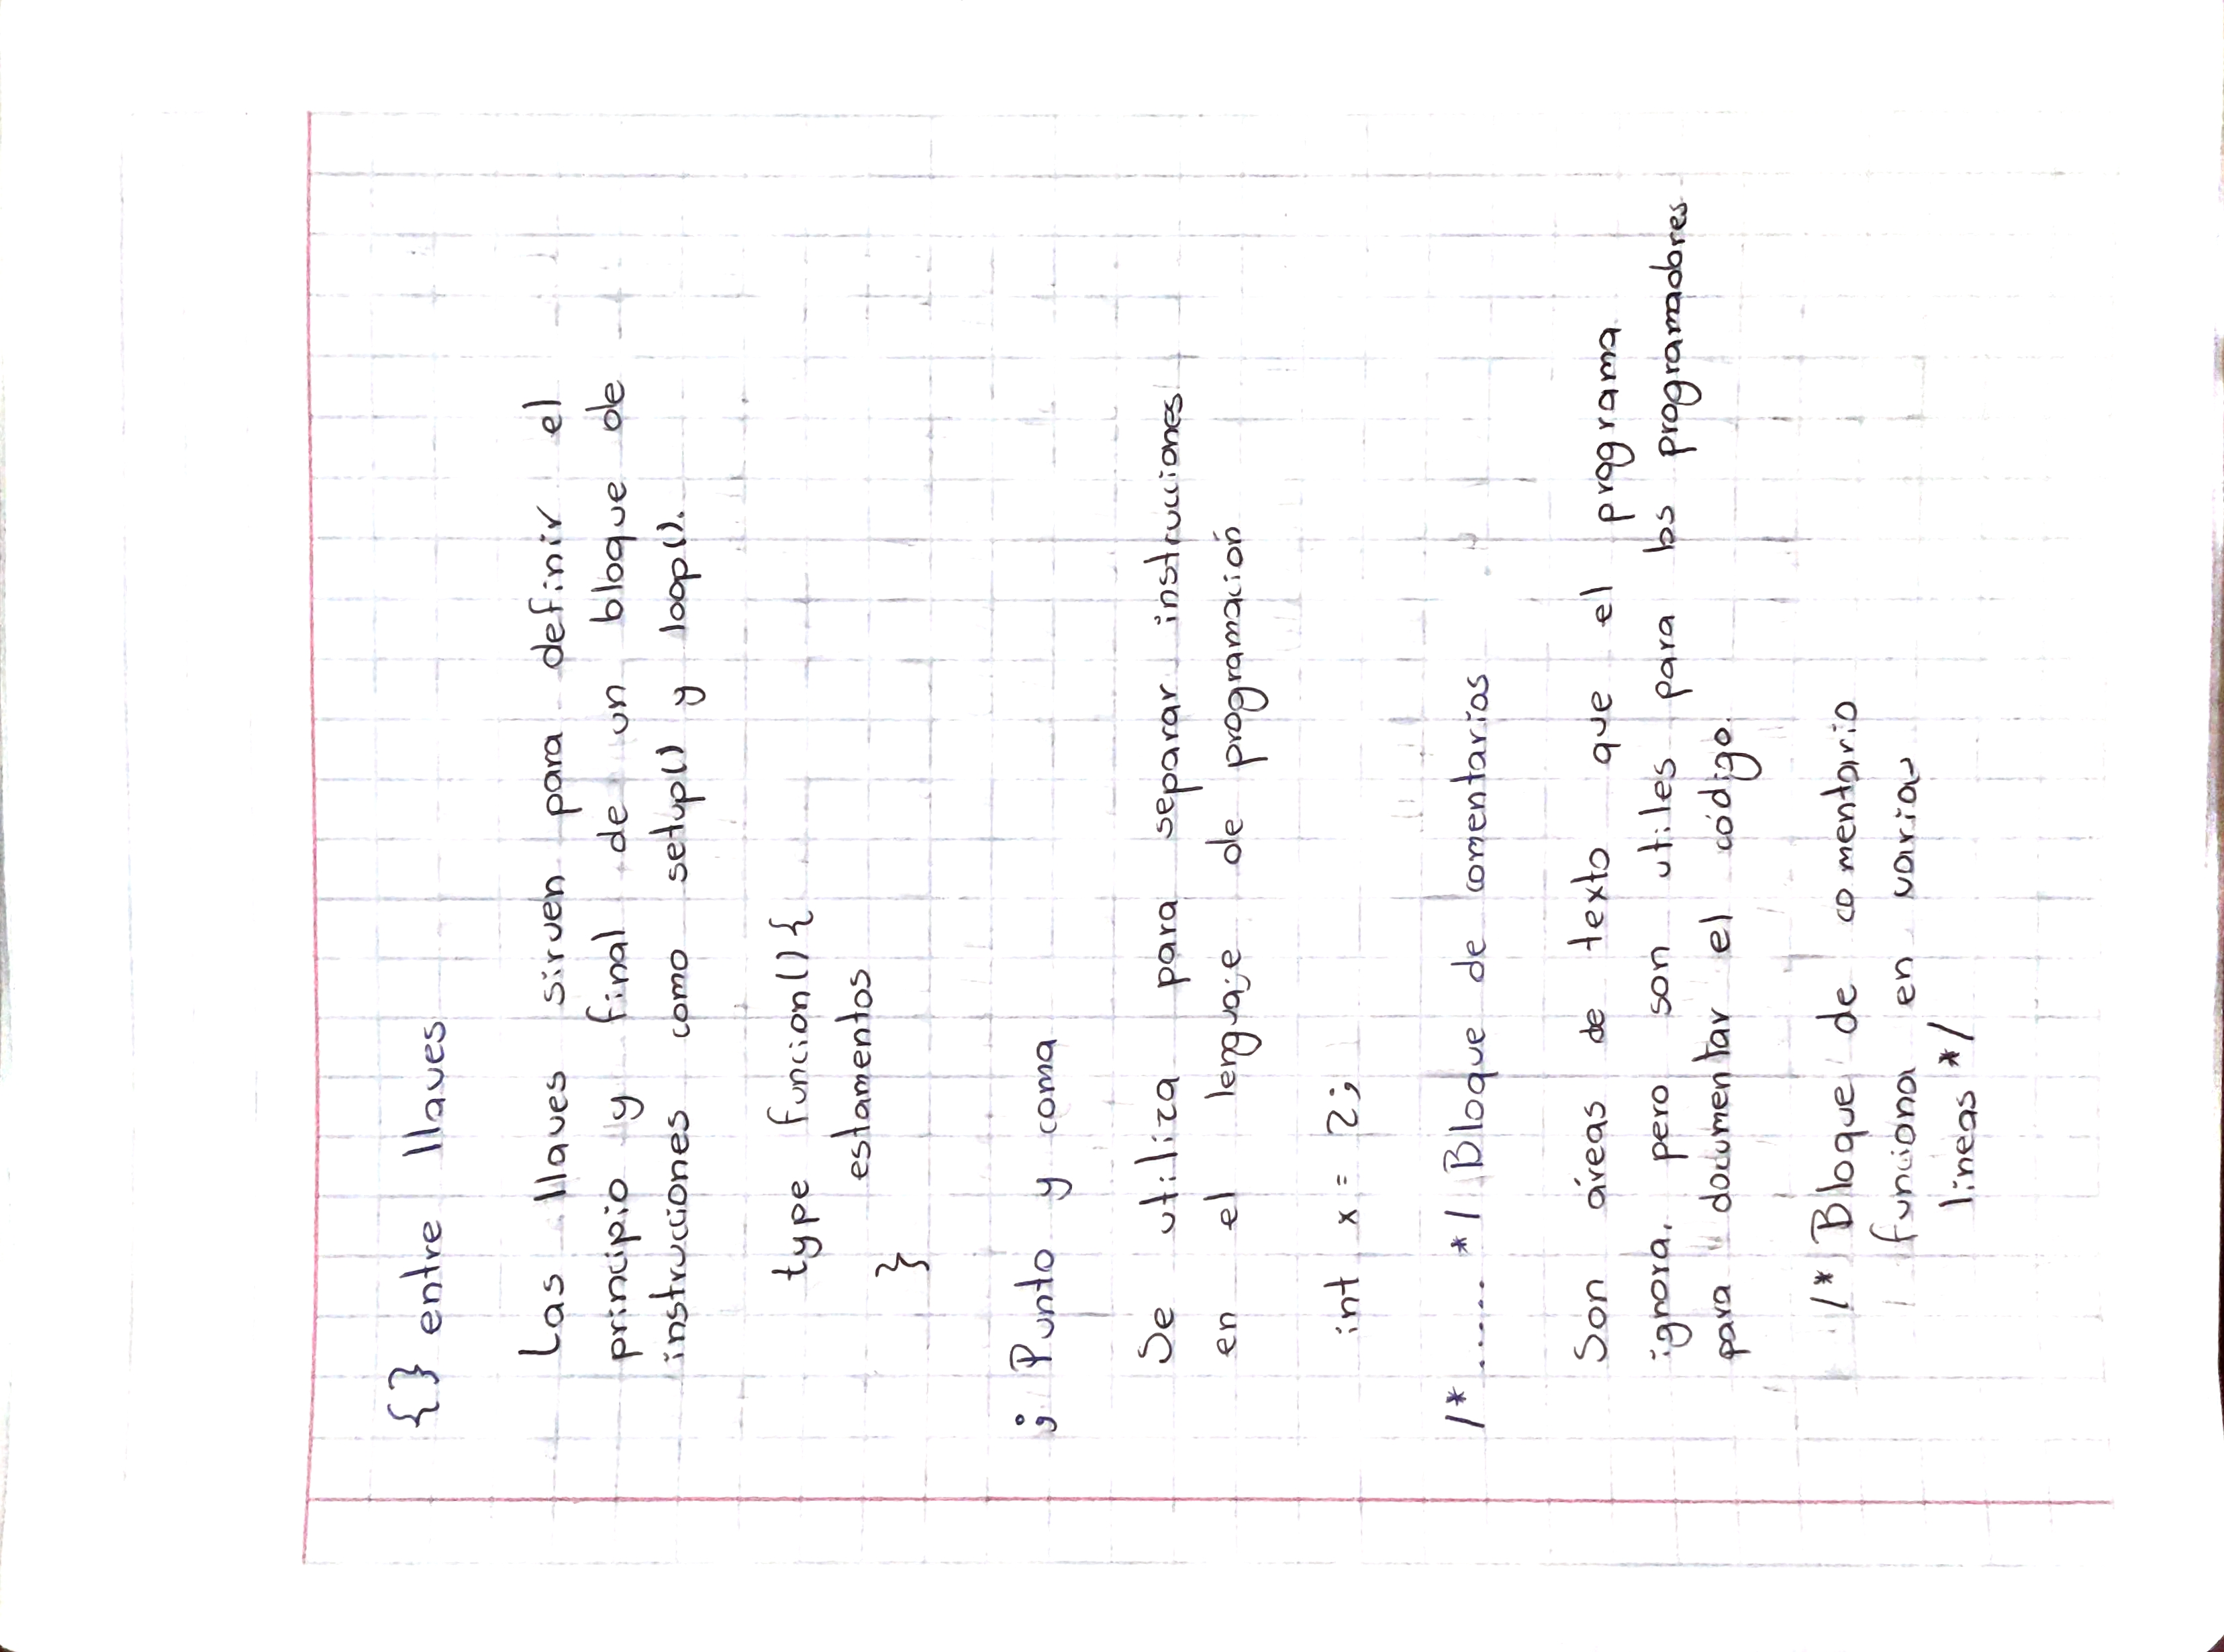 {} entre llaves
Las llaves sirven para definir el
principio y final de un bloque de
instrucciones como setup() y loop().
type funcion(){
estamentos
}
; Punto y coma
Se utiliza para separar instrucciones
en el lenguaje de programación
int x = 2;
/*.....*/ Bloque de comentarios
Son áreas de texto que el programa
ignora, pero son utiles para los programadores
para documentar el código.
/* Bloque de comentario
funciona en varias
lineas */